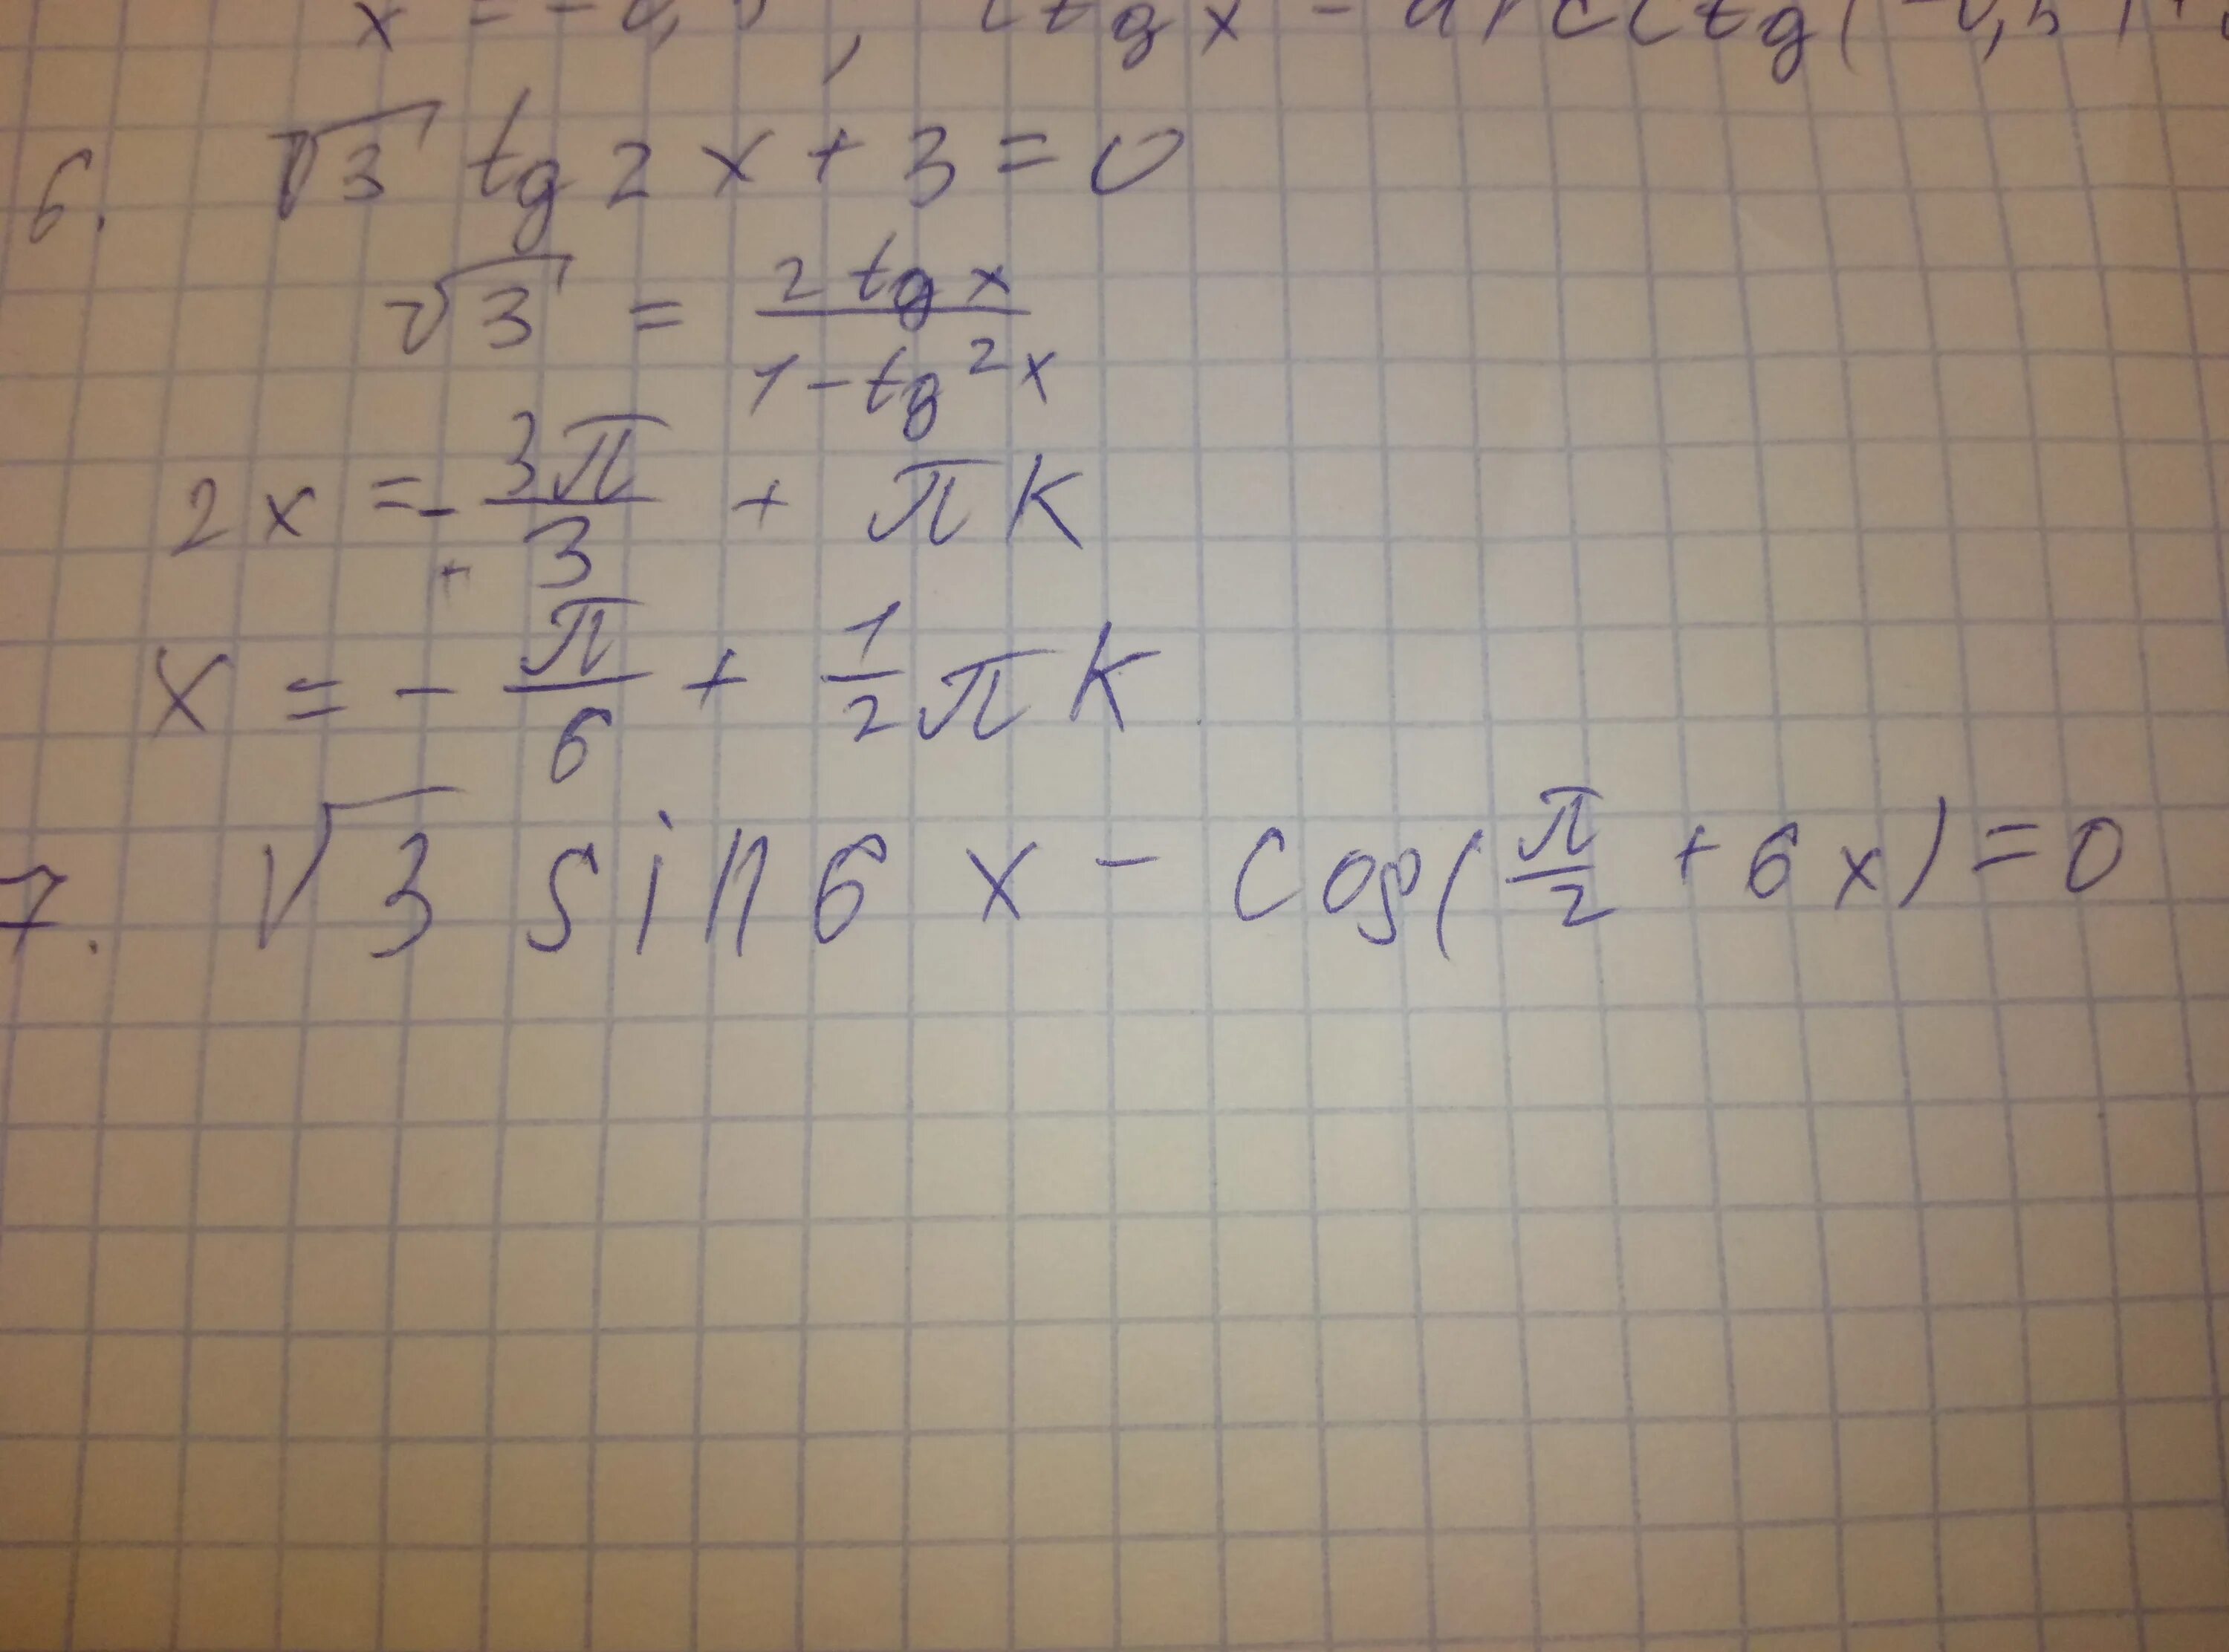 x = -0,5 , ctg x = arcctg(-0,5)+
6. √3 tg 2x + 3 = 0
√3 = 2 tg x / 1 - tg² x
2x = - 3π/3 + πk
x = - π/6 + 1/2 πk
7. √3 sin 6x - cos(π/2 + 6x) = 0